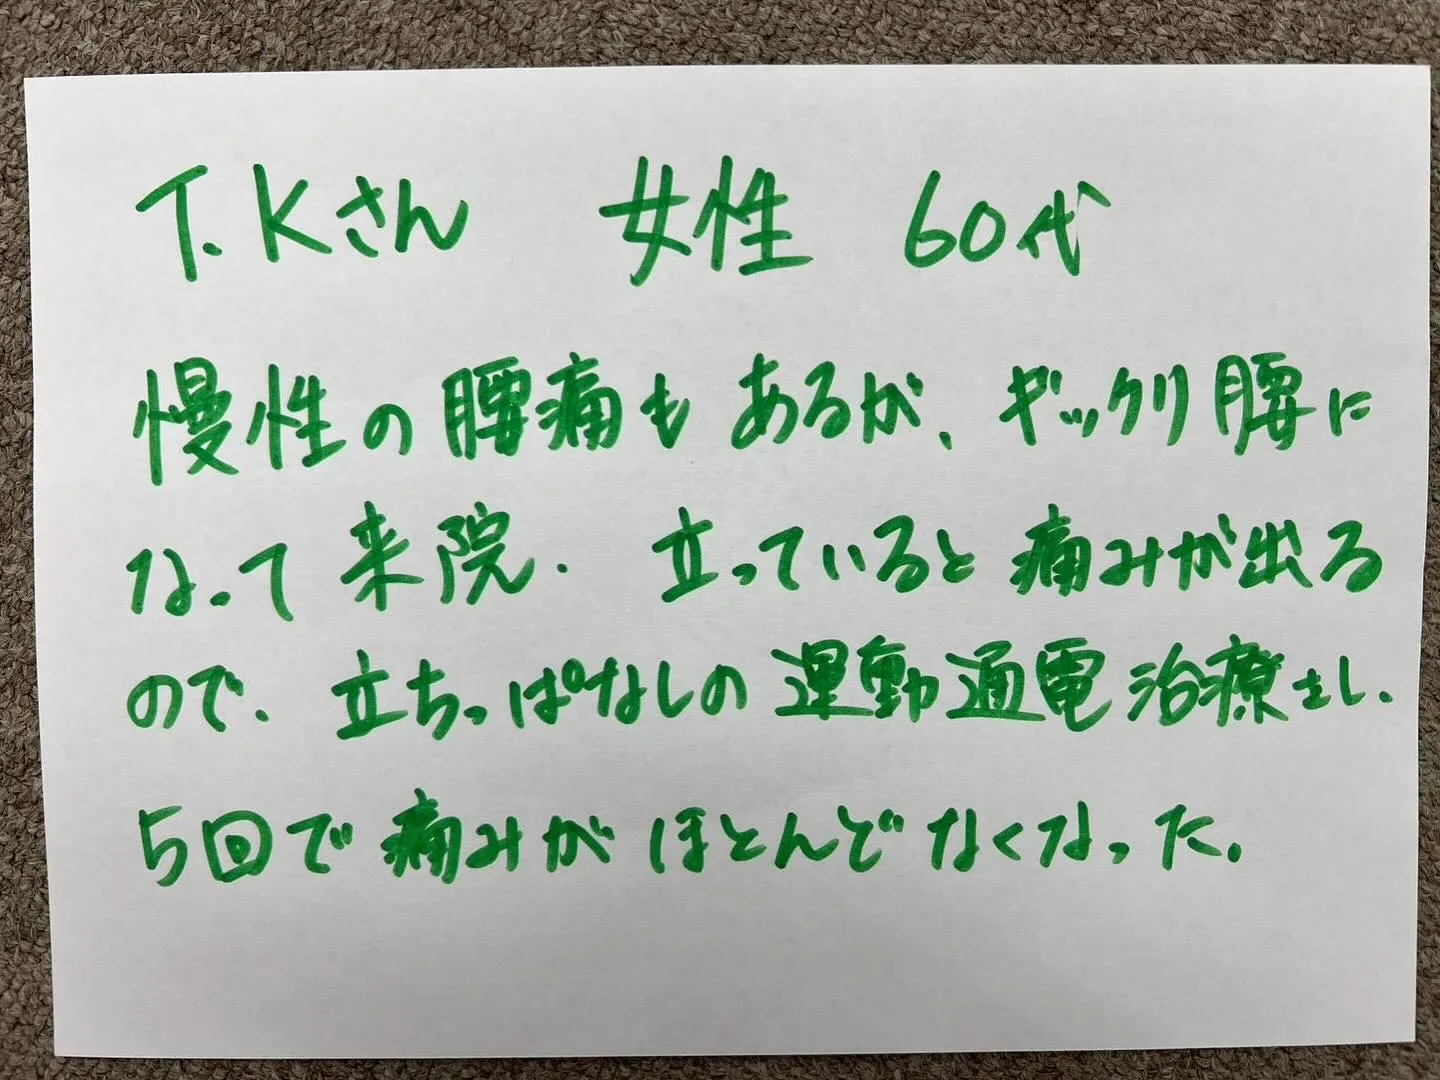 T.Kさん 女性 60代
慢性の腰痛もあるが、ギックリ腰に
なって来院. 立っていると痛みが出る
ので、立ちっぱなしの運動通電治療をし、
5回で痛みがほとんどなくなった。